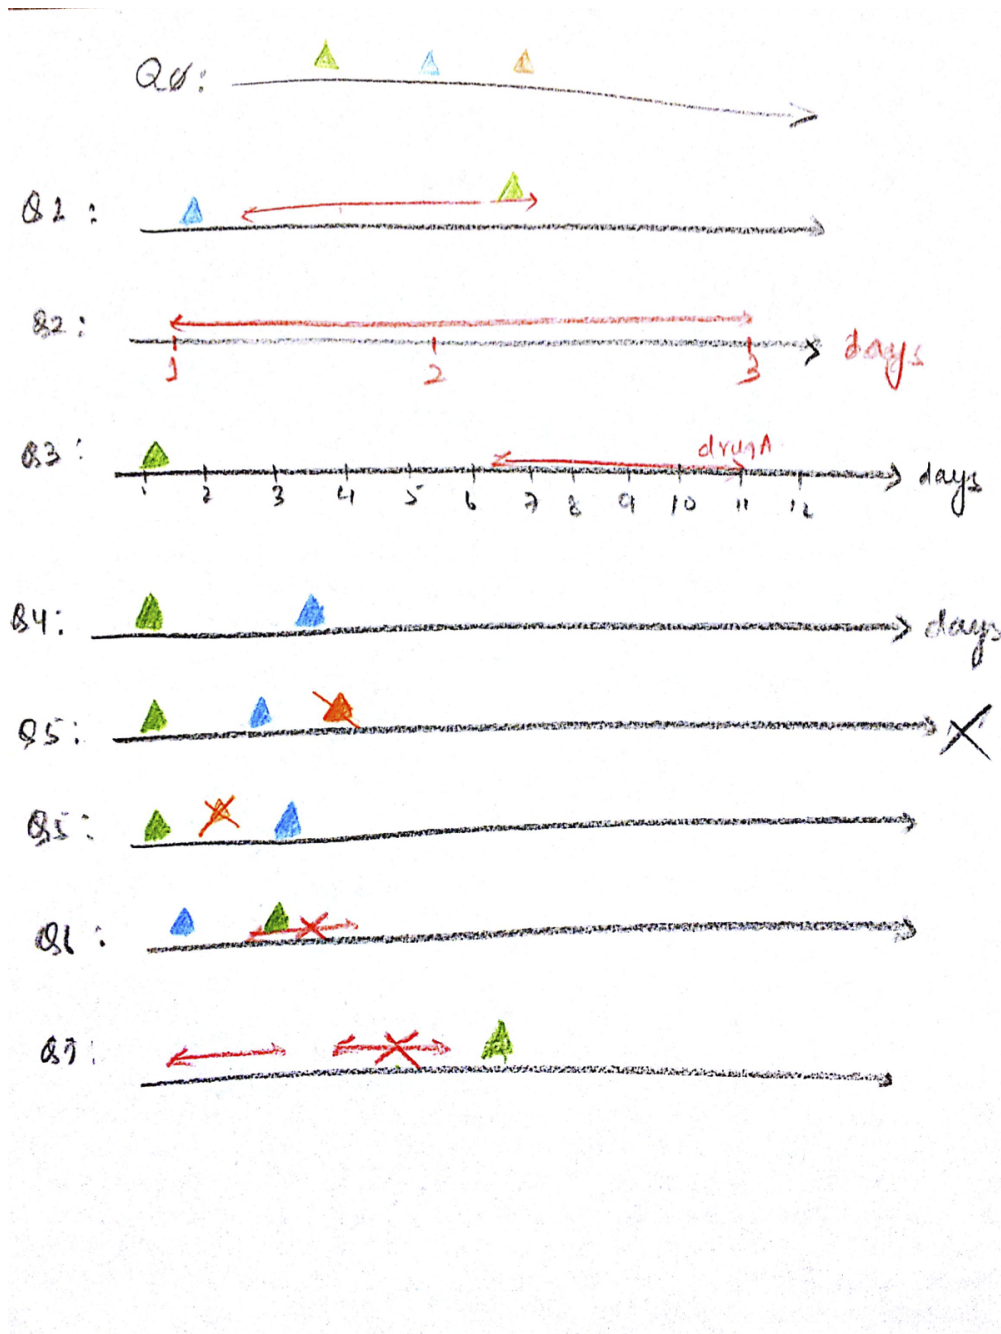 Q0:
Q1:
Q2:
days
1 2 3
Q3:
drugA
1 2 3 4 5 6 7 8 9 10 11 12
days
Q4:
days
Q5:
Q5:
Q6:
Q7: